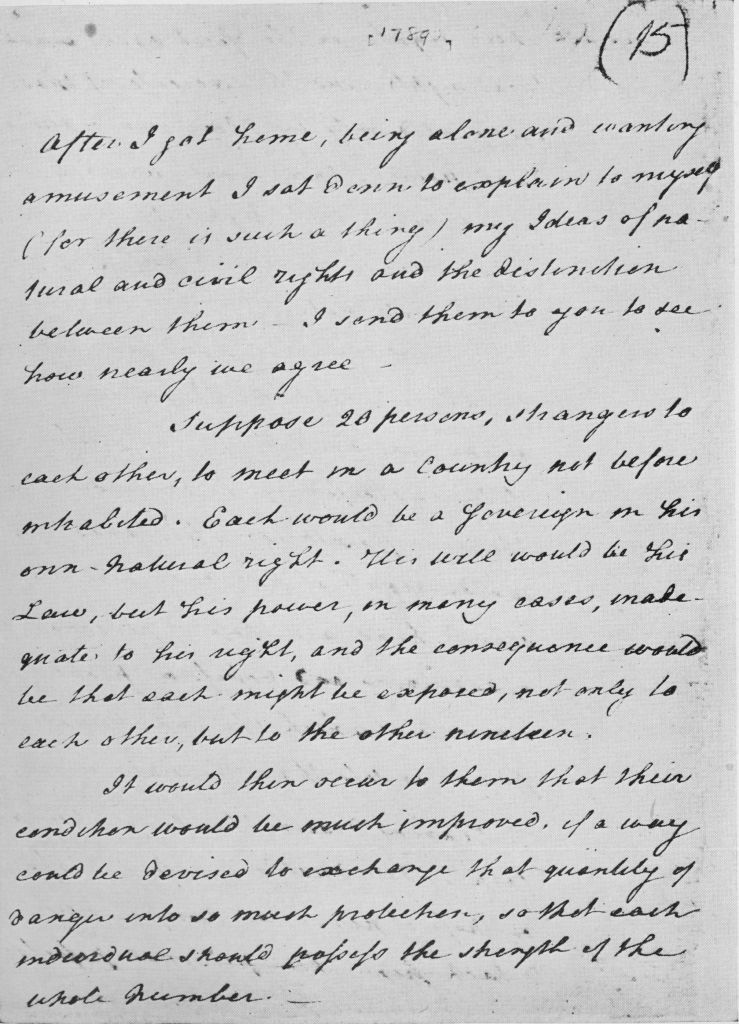 [1789]
(15)
After I got home, being alone and wanting
amusement I sat down to explain to myself
(for there is such a thing) my Ideas of na-
tural and civil rights and the distinction
between them – I send them to you to see
how nearly we agree –
Suppose 20 persons, strangers to
each other, to meet in a Country not before
inhabited. Each would be a Sovereign in his
own natural right. His will would be his
Law, but his power, in many cases, inade-
quate to his right, and the consequence would
be that each might be exposed, not only to
each other, but to the other nineteen.
It would then occur to them that their
condition would be much improved, if a way
could be devised to exchange that quantity of
danger into so much protection, so that each
individual should possess the strength of the
whole number. –